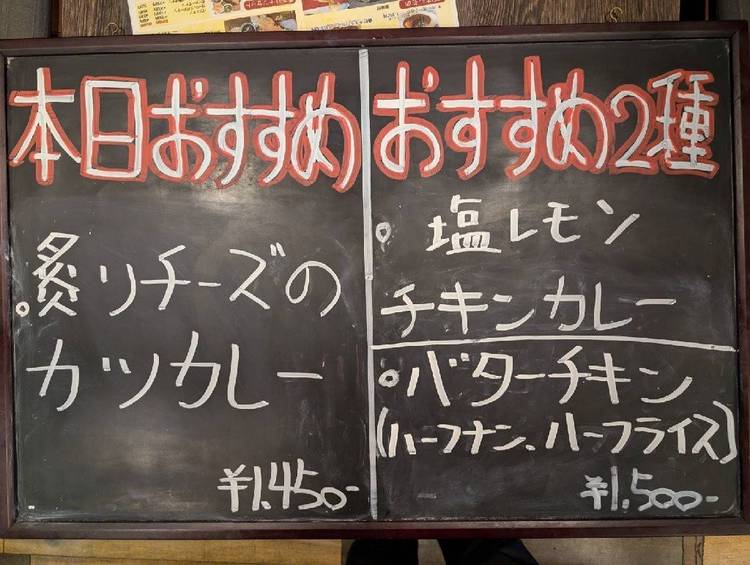 本日おすすめ
炙りチーズの
カツカレー
¥1.450-
おすすめ2種
塩レモン
チキンカレー
バターチキン
(ハーフナン、ハーフライス)
¥1.500-